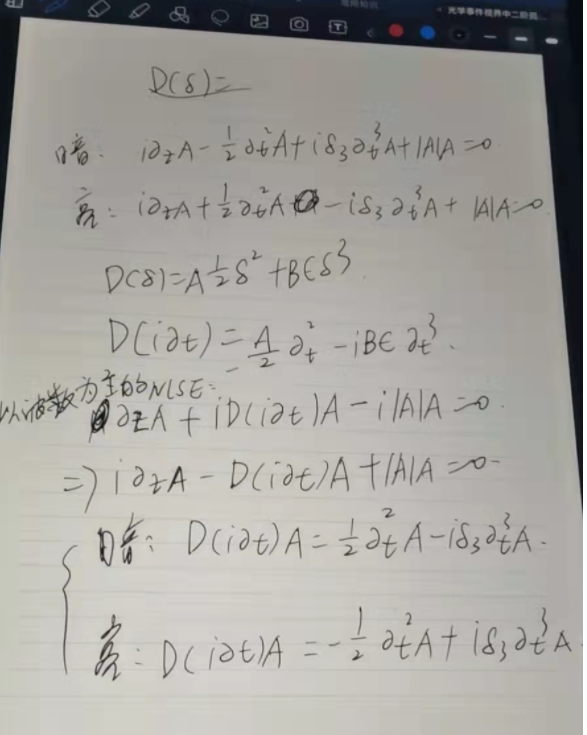 光学事件视界中二阶孤...
D(δ)=
暗: i∂zA - 1/2 ∂t²A + iδ₃∂t³A + |A|A = 0
亮: i∂zA + 1/2 ∂t²A - iδ₃∂t³A + |A|A = 0
D(δ) = A 1/2 δ² + Bεδ³
D(i∂t) = - A/2 ∂t² - iBε ∂t³.
以波数为主的NLSE:
∂zA + iD(i∂t)A - i|A|A = 0
=> i∂zA - D(i∂t)A + |A|A = 0
暗: D(i∂t)A = 1/2 ∂t²A - iδ₃∂t³A.
亮: D(i∂t)A = - 1/2 ∂t²A + iδ₃∂t³A